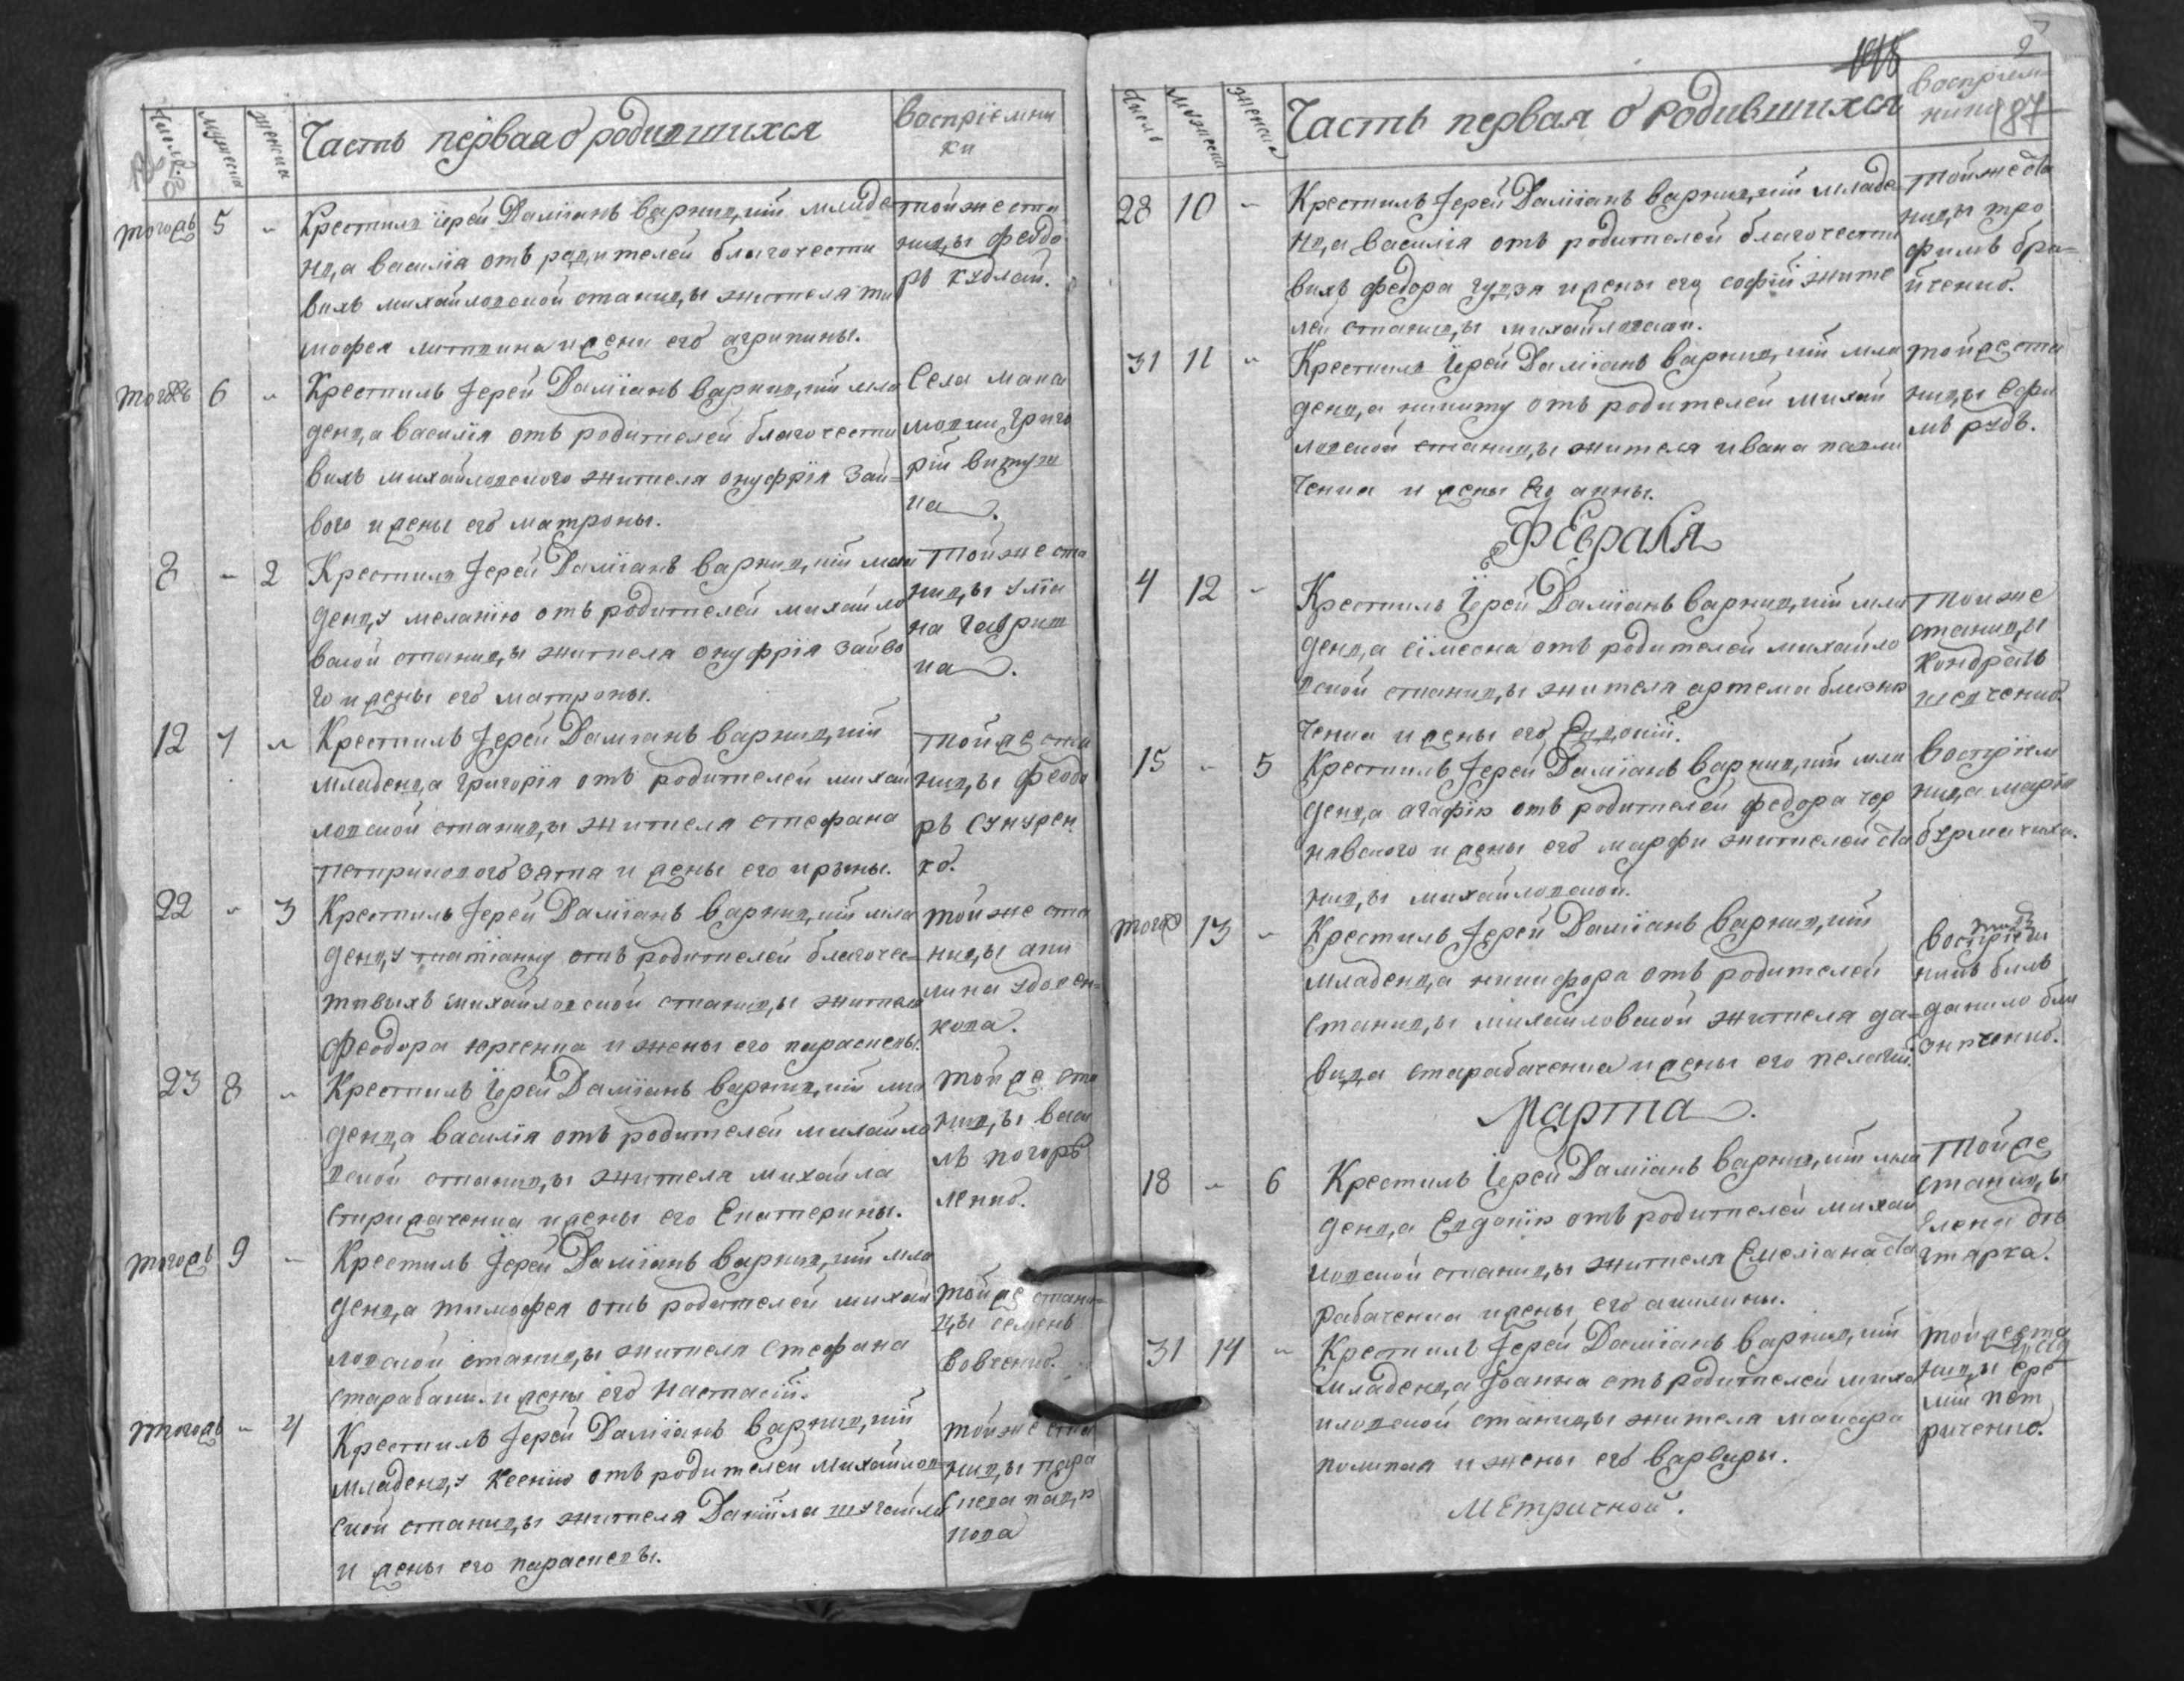 Число
мужеска
женска
Часть первая о родившихся
Восприемни
ки
тогожъ 5 " Крестилъ їерей Даміанъ Варниц,кій младе
нц,а василія отъ родителей благочести
вихъ михайловской станиц,ы жителя ти
мофея литвина и жени его агрипины.
тойже ста
ниц,ы феодо
ръ кудлай.
тогожъ 6 " Крестилъ Іерей Даміанъ Варниц,кій мла
денц,а василія отъ родителей благочести
вихъ михайловского жителя онуфрія Зай=
вого и жены его матроны.
Села мака
григо
рій
8 – 2 Крестилъ Іерей Даміанъ Варниц,кій мла
денц,у меланію отъ родителей михайло
вской станиц,ы жителя онуфрія Зайво
го и жены его матроны.
Тойже ста
ниц,ы улія
на
12 7 " Крестилъ Іерей Даміанъ Варниц,кій
младенц,а григорія отъ родителей михай
ловской станиц,ы жителя стефана
зятя и жены его ирыны.
тойже ста
ниц,ы феодо
ръ Сукурен
ко.
22 " 3 Крестилъ Іерей Даміанъ Варниц,кій мла
денц,у татіанну отъ родителей благочес
тивыхъ михайловской станиц,ы жителя
феодора юрченка и жены его параскевы.
тойже ста
ниц,ы аки
лина удовен
кова.
23 8 " Крестилъ Їерей Даміанъ Варниц,кій мла
денц,а василія отъ родителей михайло
вской станиц,ы жителя михайла
спиридаченка и жены его Екатерины.
тойже ста
ниц,ы васи
ль погоръ
ленко.
тогожъ 9 – Крестилъ Їерей Даміанъ Варниц,кій мла
денц,а тимофея отъ родителей михай
ловской станиц,ы жителя Стефана
старабаки и жены его Настасій.
тойже стани=
ц,ы семенъ
вовченко.
тогожъ " 4 Крестилъ Іерей Даміанъ Варниц,кій
младенц,у Ксенію отъ родителей михайлов
ской станиц,ы жителя Даніила шугайла
и жены его параскевы.
тойже ста
ниц,ы пара
скева
кова
2
187
Число
Мужеска
женска
Часть первая о Родившихся
Восприем
ники
28 10 – Крестилъ Іерей Даміанъ Варниц,кій младе
нц,а василія отъ родителей благочести
вихъ федора гудза и жены его софій жите
лей станиц,ы михайловской.
Тойже ста
ниц,ы тро
фимъ бра=
йченко.
31 11 " Крестилъ Їерей Даміанъ Варниц,кій мла
денц,а никиту отъ родителей михай
ловской станиц,ы жителя ивана павли
ченка и жены его анны.
тойже ста
ниц,ы Ефи
мъ рудь.
Февраля
4 12 – Крестилъ Їерей Даміанъ Варниц,кій мла
денц,а сімеона отъ родителей михайло
вской станиц,ы жителя артема близню
ченка и жены его Евдокій.
Тойже
станиц,ы
кондратъ
шевченко
15 " 5 Крестилъ Іерей Даміанъ Варниц,кій мла
денц,а агафію отъ родителей федора чер
нявского и жены его марфи жителей ста
ниц,ы михайловской.
Восприем
ниц,а марія
бурмачиха.
тогожъ 13 " Крестилъ Іерей Даміанъ Варниц,кій
младенц,а никифора отъ родителей
станиц,ы михайловской жителя да=
вида старабаченка и жены его пелагій.
Восприем
никъ билъ
данило бли
знюченко.
Марта.
18 " 6 Крестилъ Їерей Даміанъ Варниц,кій мла
денц,а Евдокію отъ родителей михай
ловской станиц,ы жителя Емеліана ста
рабаченка и жены его акилины.
Тойже
станиц,ы
Елена дѣ
гтярка.
31 14 " Крестилъ Іерей Даміанъ Варниц,кій
младенц,а Іоанна отъ родителей миха
йловской станиц,ы жителя макара
и жены его варвары.
тойже ста
ниц,ы ере
мій пет
риченко.
Метрической.